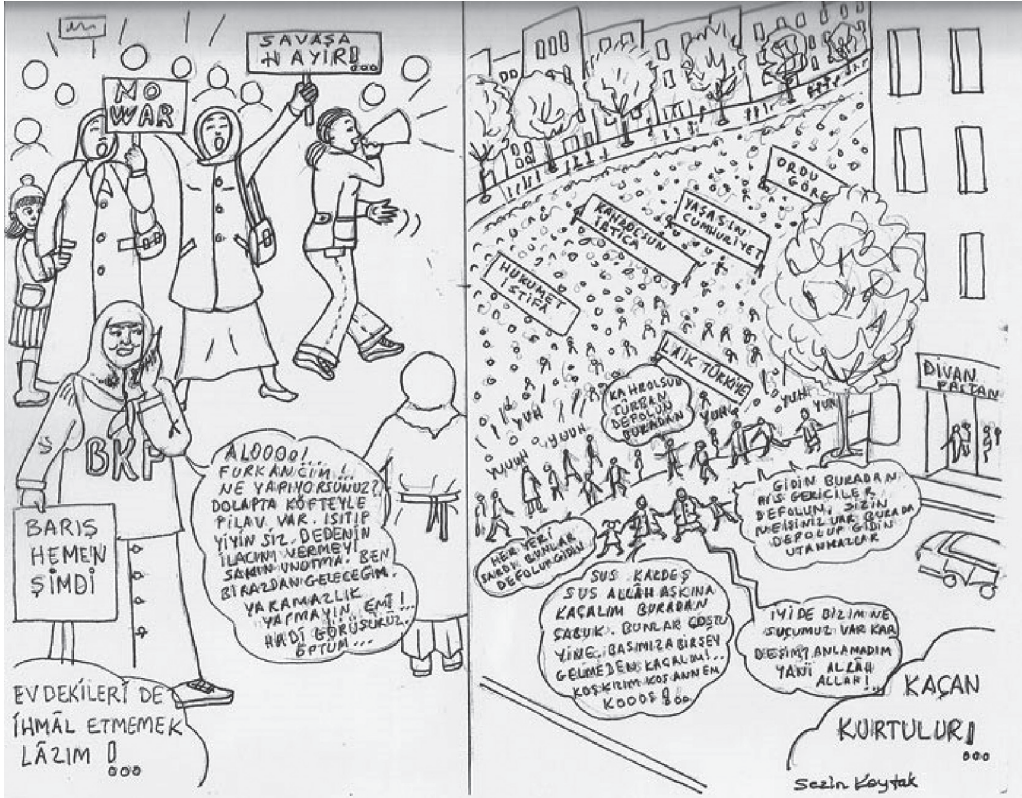 NO
WAR
SAVAŞA
HAYIR!...
BKP
BARIŞ
HEMEN
ŞİMDİ
ALOOOO!..
FURKANCIM!..
NE YAPIYORSUNUZ?
DOLAPTA KÖFTEYLE
PİLAV VAR. ISITIP
YİYİN SİZ. DEDENİN
İLACINI VERMEYİ
SAKIN UNUTMA. BEN
BİRAZDAN GELECEĞİM.
YARAMAZLIK
YAPMAYIN EMİ!..
HADİ GÖRÜŞÜRÜZ.
ÖPTÜM...
EVDEKİLERİ DE
İHMÂL ETMEMEK
LÂZIM !...
ORDU
GÖRE
YAŞASIN
CUMHURİYET
KAHROLSUN
İRTİCA
HÜKUMET
İSTİFA
LAİK TÜRKİYE
KAHROLSUN
TÜRBAN
DEFOLUN
BURADAN
YUH
YUH
YUH
YUUUH
YUUUH
DİVAN
PALTAN
GİDİN BURADAN
PİS GERİCİLER,
DEFOLUN, SİZİN
NEİŞİNİZ VAR BURADA
DEFOLUP GİDİN
UTANMAZLAR
HER YERİ
SARDI BUNLAR
DEFOLUN GİDİN
SUS KARDEŞ
SUS ALLÂH AŞKINA
KAÇALIM BURADAN
ÇABUK. BUNLAR COŞTU
YİNE. BAŞIMIZA BİRŞEY
GELMEDEN KAÇALIM!..
KOŞ KIZIM KOŞ ANNEM
KOOOŞ!...
İYİ DE BİZİM NE
SUÇUMUZ VAR KAR
DEŞİM? ANLAMADIM
YANİ ALLÂH
ALLAH!..
KAÇAN
KURTULUR!...
Sezin Koytak